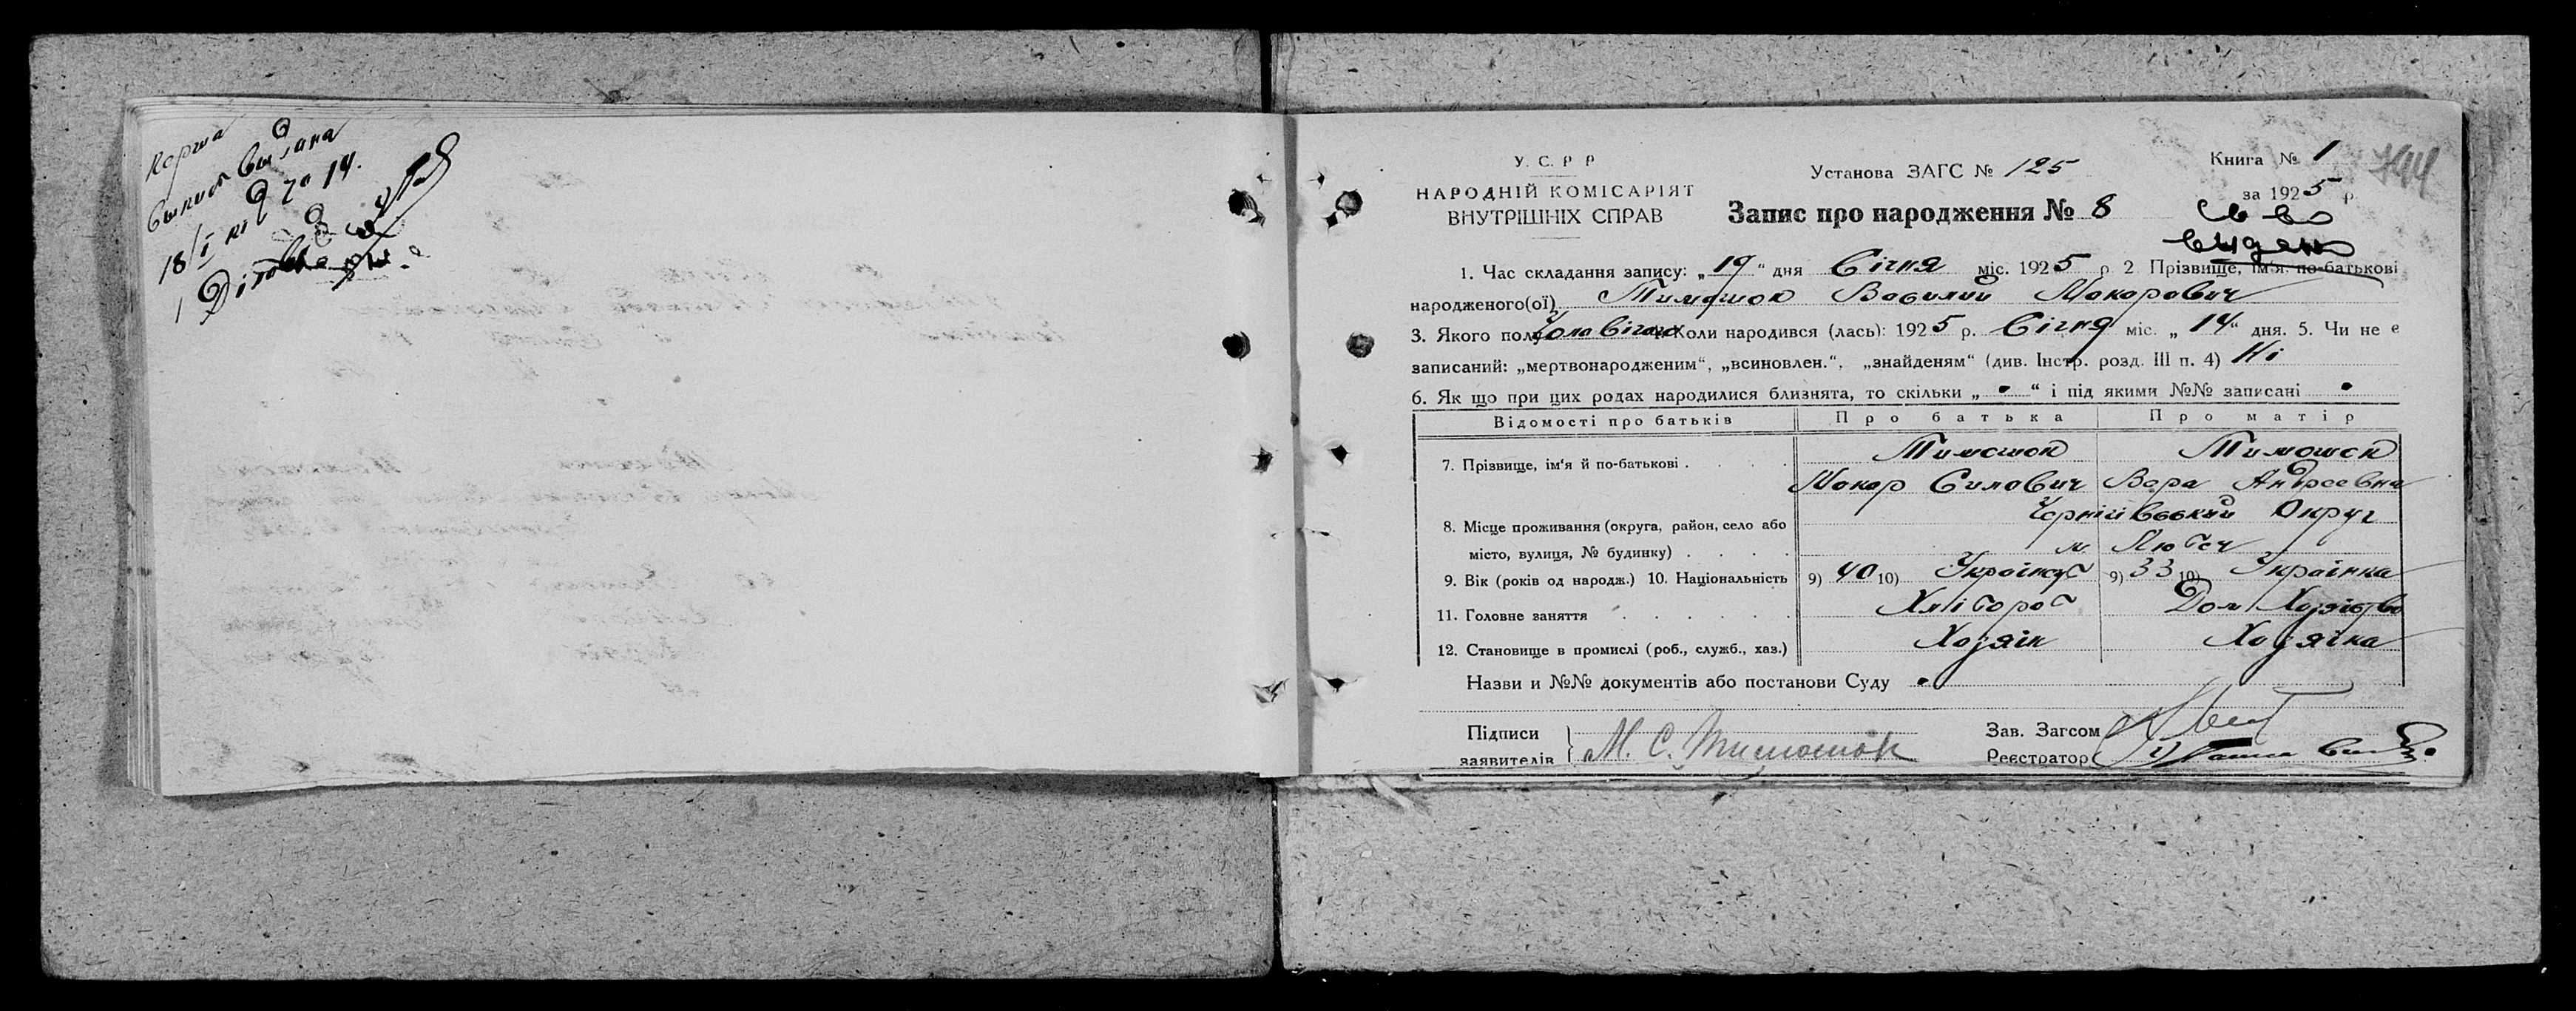 Перша
выпись выдана
18/I
Діловод
У. С. Р Р
НАРОДНІЙ КОМІСАРІЯТ
ВНУТРІШНІХ СПРАВ
Установа ЗАГС № 125
Запис про народження № 8
Книга № 1
за 1925 р
744
Св-во
выдано
1. Час складання запису: „19“ дня Січня міс. 1925 р 2 Прізвище, ім'я по-батькові
народженого(ої) Тимошок Василий Макарович
3. Якого полу Чоловічого 4. Коли народився (лась): 1925 р. Січня міс. „14“ дня. 5. Чи не є
записаний: „мертвонародженим“, „всиновлен.“, „знайденям“ (див. Інстр. розд. III п. 4) Ні
6. Як що при цих родах народилися близнята, то скільки „ “ і під якими №№ записані
Відомості про батьків Про батька Про матір
7. Прізвище, ім'я й по-батькові . . . . Тимошок Тимошок
Макар Силович Вера Андреевна
8. Місце проживання (округа, район, село або Чернігівський Округ
місто, вулиця, № будинку) . . . . м. Любеч
9. Вік (років од народж.) 10. Національність 9) 40 10) Українець 9) 33 10) Українка
11. Головне заняття . . . . . . Хлібороб Дом Хозяйство
12. Становище в промислі (роб., служб., хаз.) Хозяін Хозяїка
Назви и №№ документів або постанови Суду
Підписи Зав. Загсом
заявителів М. С. Тимошок Реєстратор